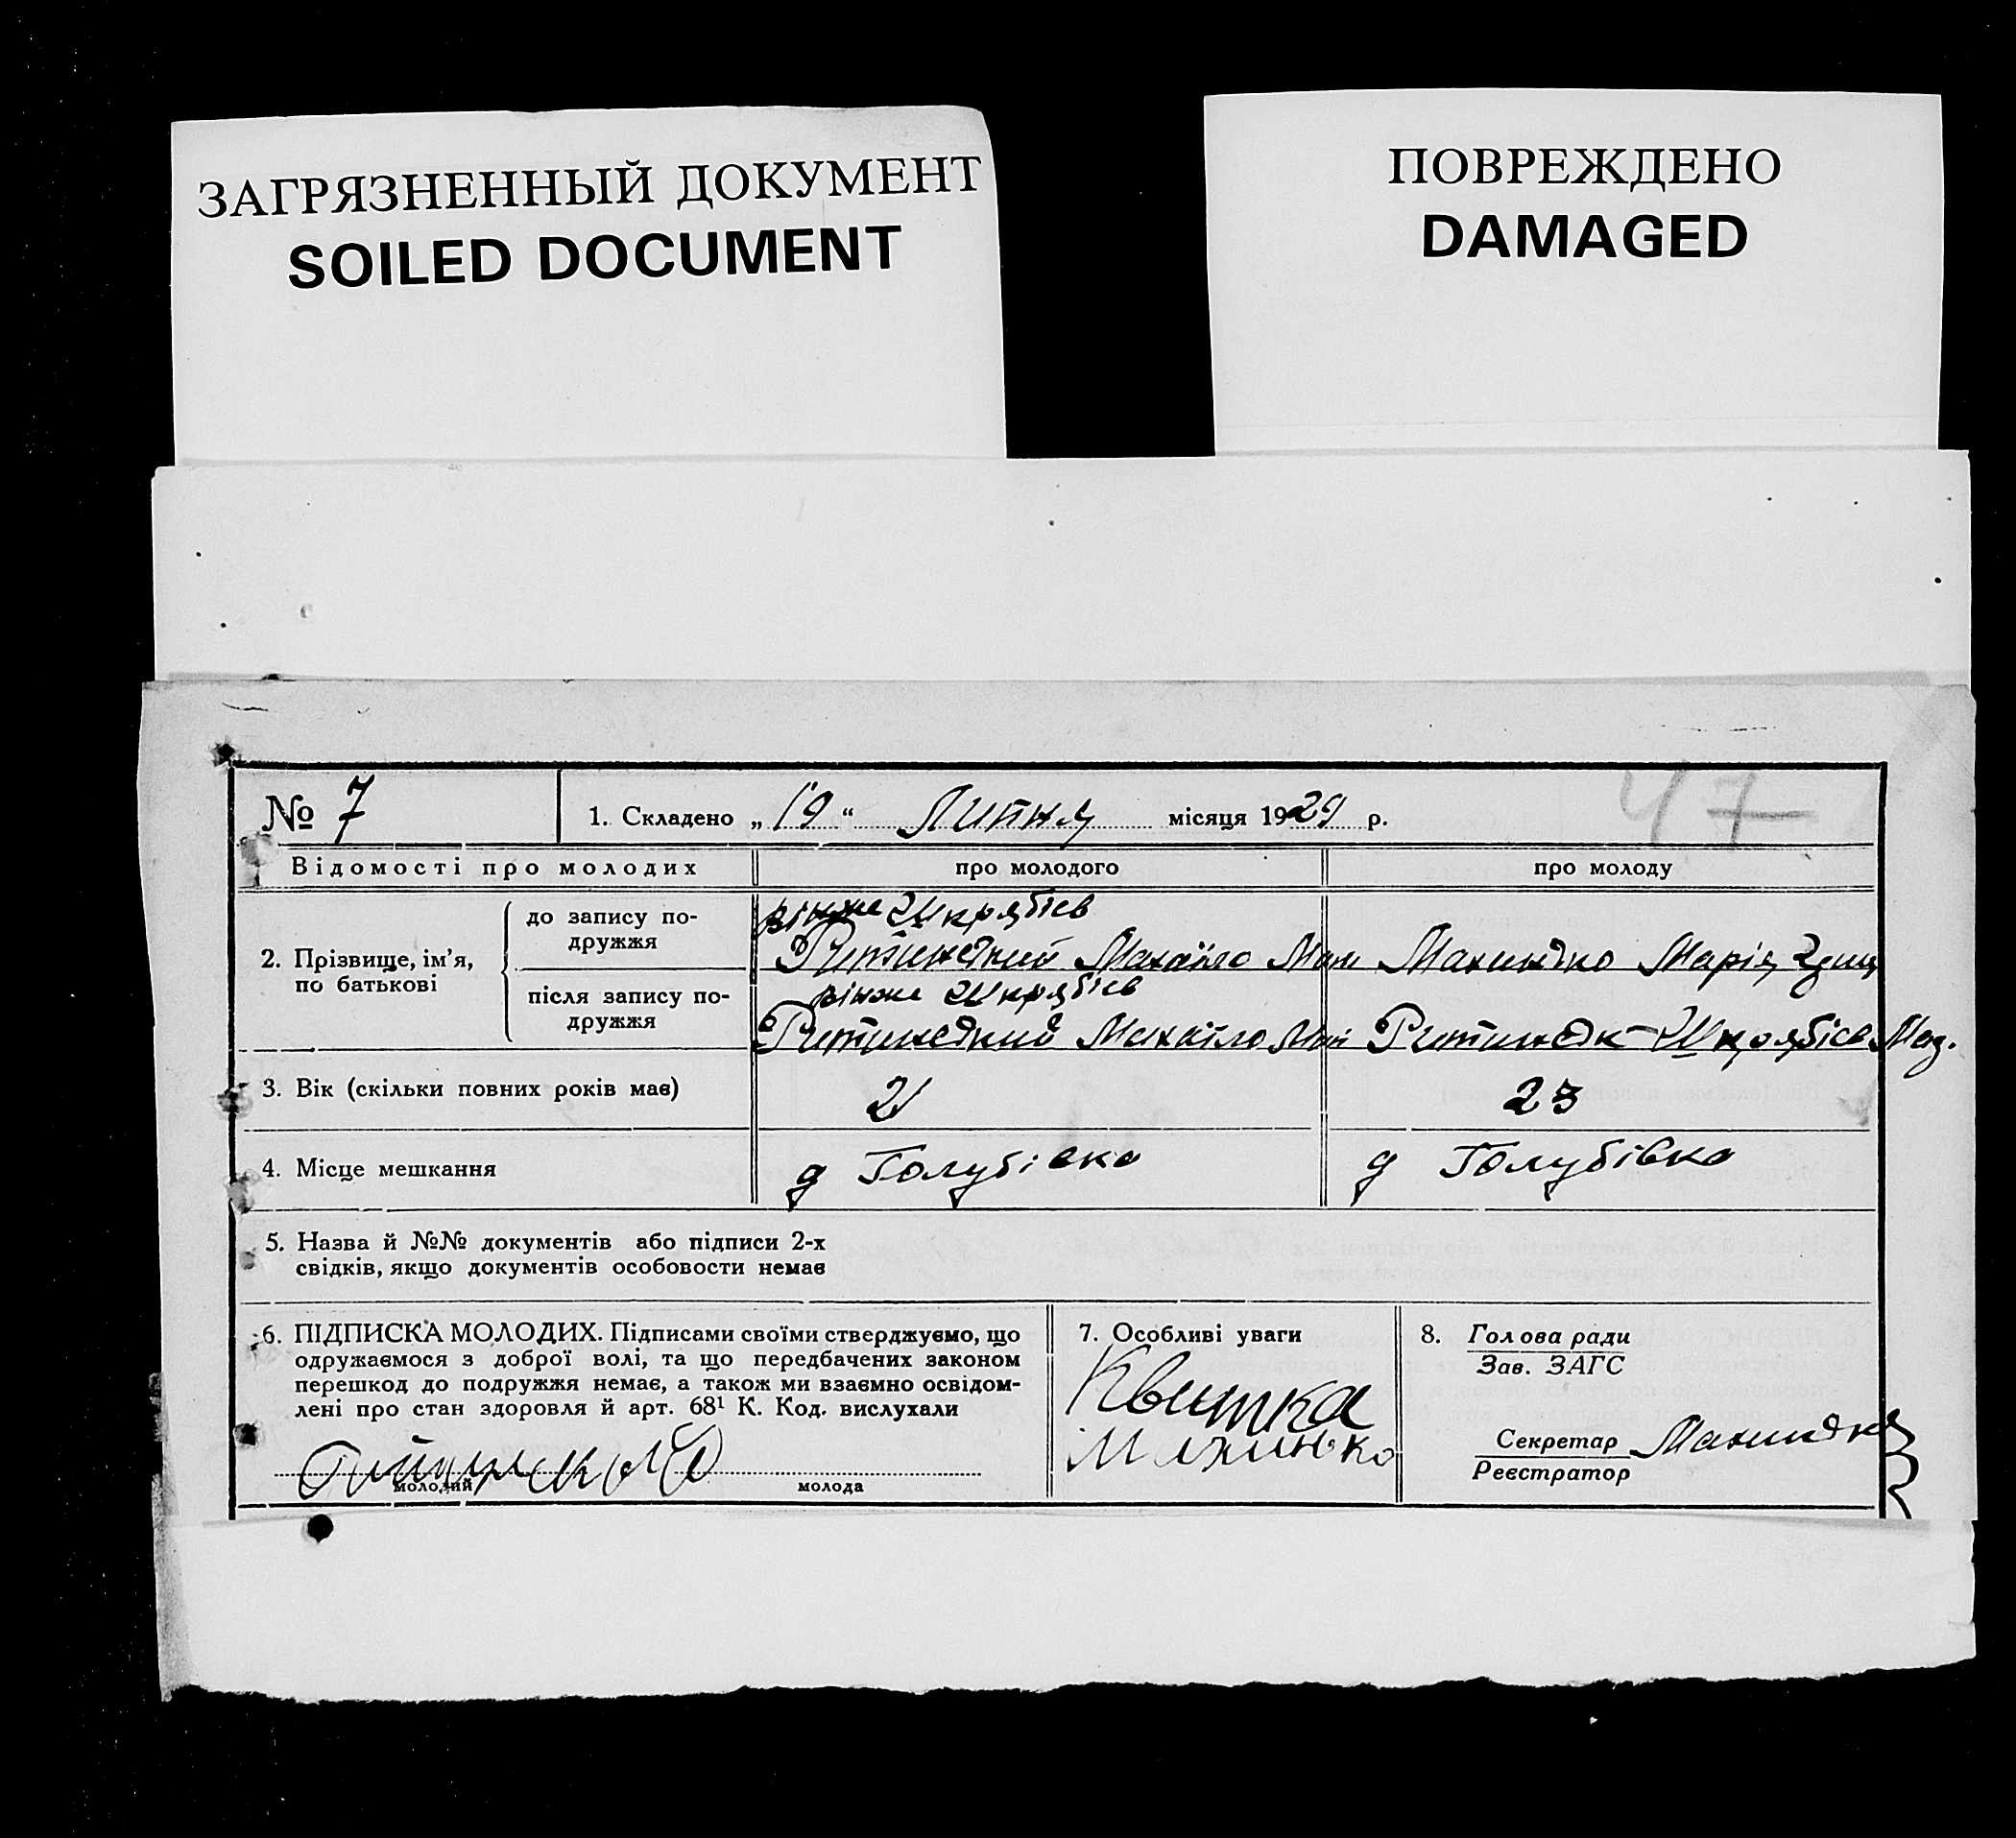 ЗАГРЯЗНЕННЫЙ ДОКУМЕНТ
SOILED DOCUMENT
ПОВРЕЖДЕНО
DAMAGED
47
№ 7
1. Складено „19“ Липня місяця 1929 р.
Відомості про молодих
про молодого
про молоду
2. Прізвище, ім'я, по батькові
до запису по-
дружжя
Шкрябієв
Михайло
Махинько Марія
після запису по-
дружжя
Шкрябієв
Михайло
Шкрябієв
3. Вік (скільки повних років має)
21
23
4. Місце мешкання
д Голубівка
д Голубівка
5. Назва й №№ документів або підписи 2-х
свідків, якщо документів особовости немає
6. ПІДПИСКА МОЛОДИХ. Підписами своїми стверджуємо, що
одружаємося з доброї волі, та що передбачених законом
перешкод до подружжя немає, а також ми взаємно освідом-
лені про стан здоровля й арт. 68¹ К. Код. вислухали
молодий
молода
7. Особливі уваги
Квитка
Махинько
8. Голова ради
Зав. ЗАГС
Секретар
Реєстратор
Махинько